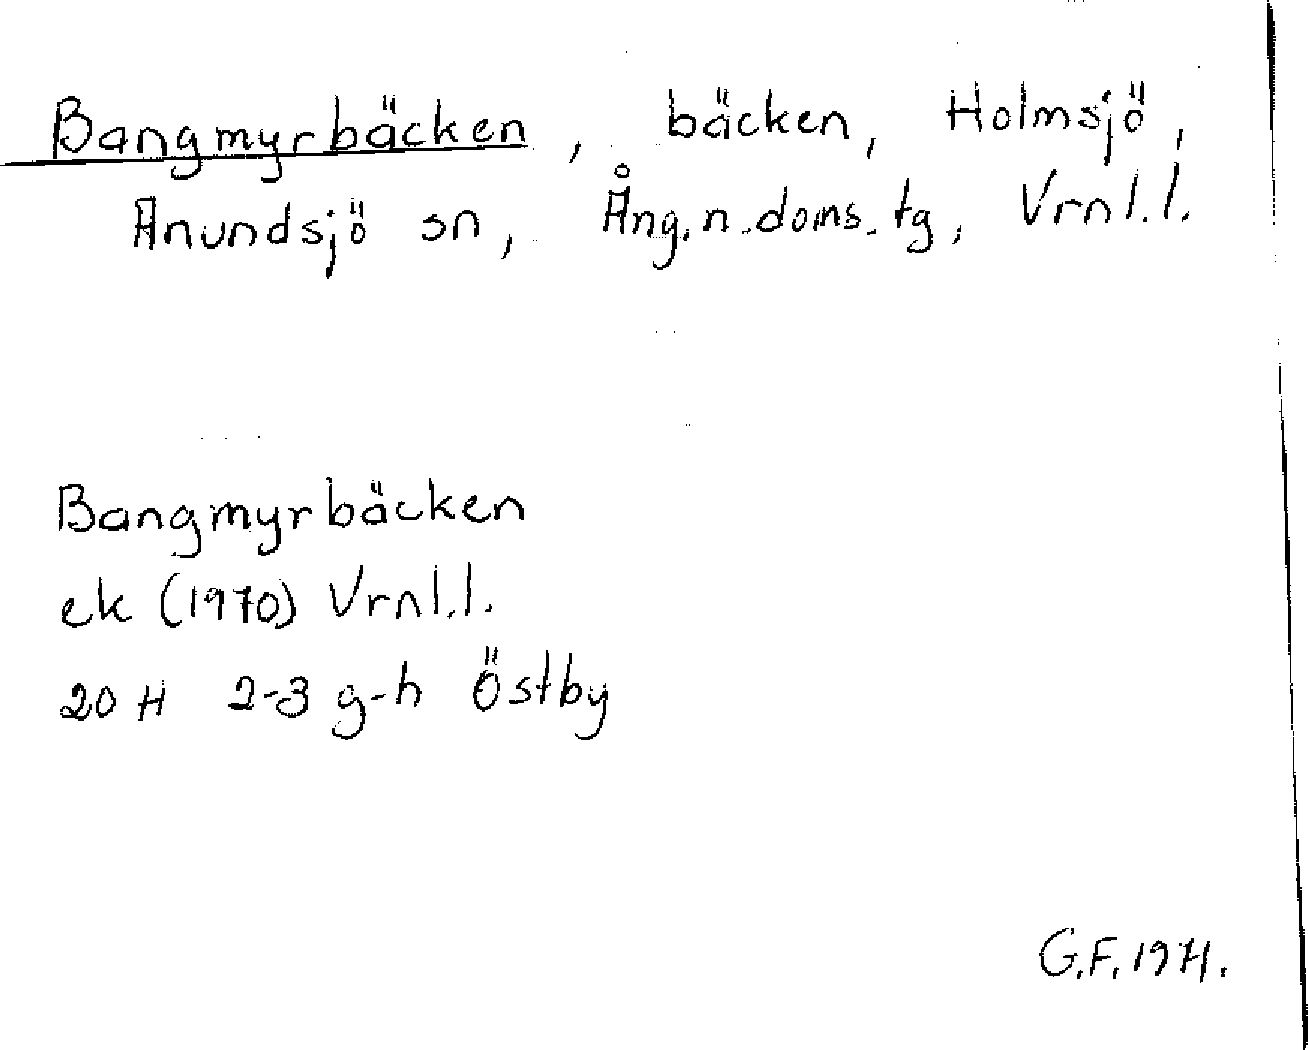 Bangmyrbäcken, bäcken, Holmsjö,
Anundsjö sn, Ång.n.doms.tg, Vrnl.l.
Bangmyrbäcken
ek (1970) Vrnl.l.
20 H 2-3 g-h Östby
G.F. 1971.